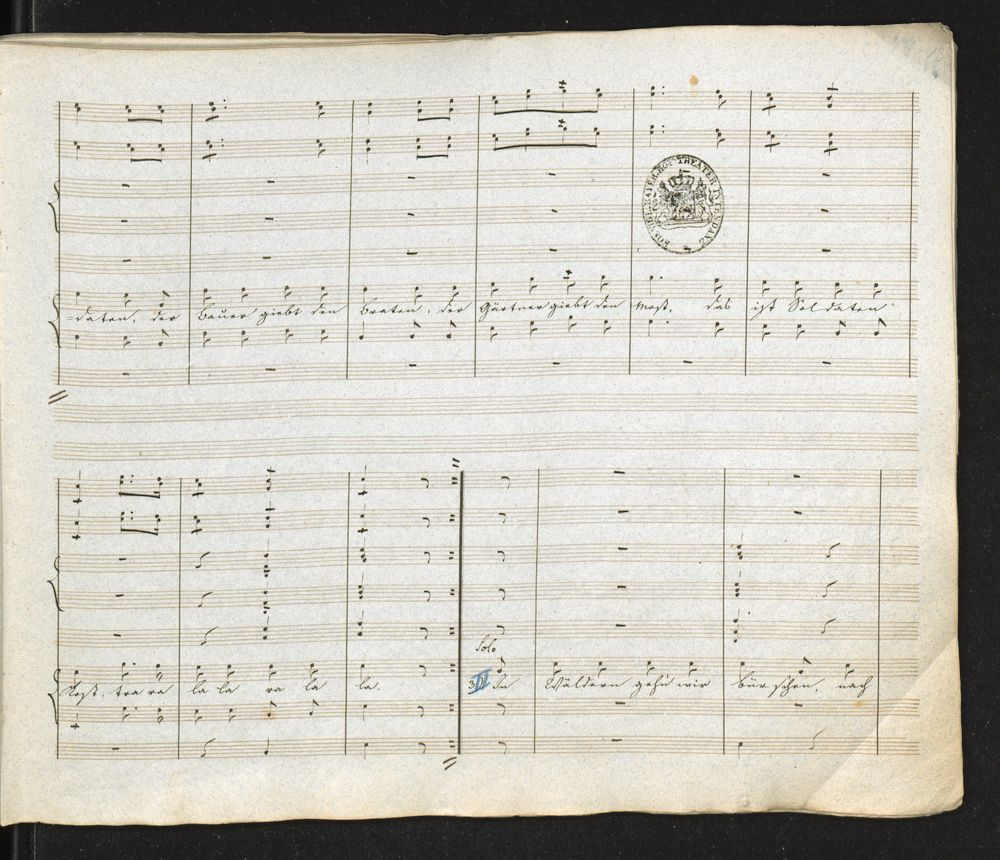 KOENIGL. BAIER. HOF THEATER INTENDANZ
-daten, der Bauer giebt den Braten, der Gärtner giebt den Most, das ist Soldaten
Kost. tra ra la la ra la la.
Solo
3 III In Wäldern gehn wir bürschen, nach